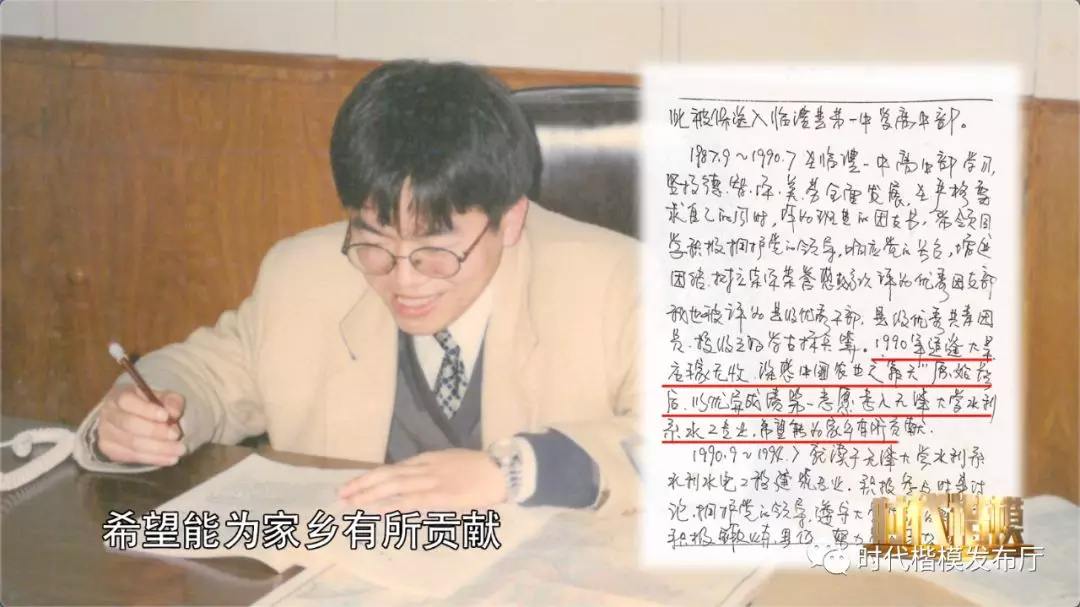 此被保送入临澧县第一中学高中部。
1987.9～1990.7在临澧一中高中部学习,
坚持德.智.体.美.劳全面发展,在严格要
求自己的同时,作为班里的团支书,带领同
学积极拥护党的领导,响应党的号召,增进
团结.树立集体荣誉感.被评为优秀团支部
我也被评为县级优秀干部、县级优秀共青团
员、
1990年适逢大旱
庄稼无收.深感中国农业之"靠天"原始落
后.以优异成绩第一志愿考入天津大学水利
系水工专业.希望能为家乡有所贡献.
1990.9～1994.7就读于天津大学水利系
水利水电工程建筑专业.积极参与时事讨
论.拥护党的领导.遵守大
积极
希望能为家乡有所贡献
时代楷模
时代楷模发布厅